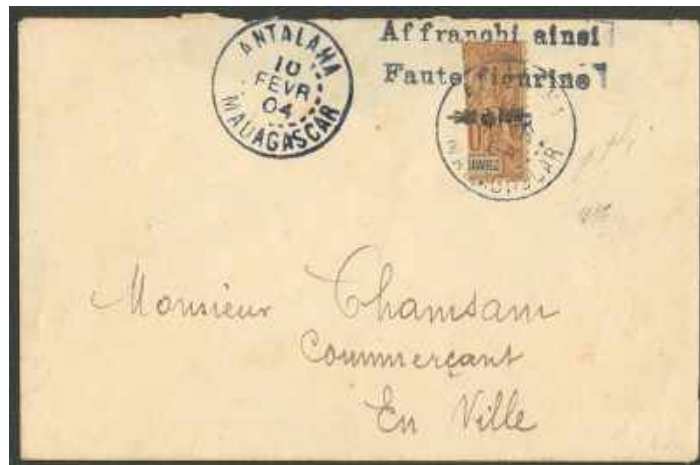 ANTALAHA
10
FEVR
04
MADAGASCAR
Affranchi ainsi
Faute figurine
Monsieur Thamsam
Commerçant
En Ville